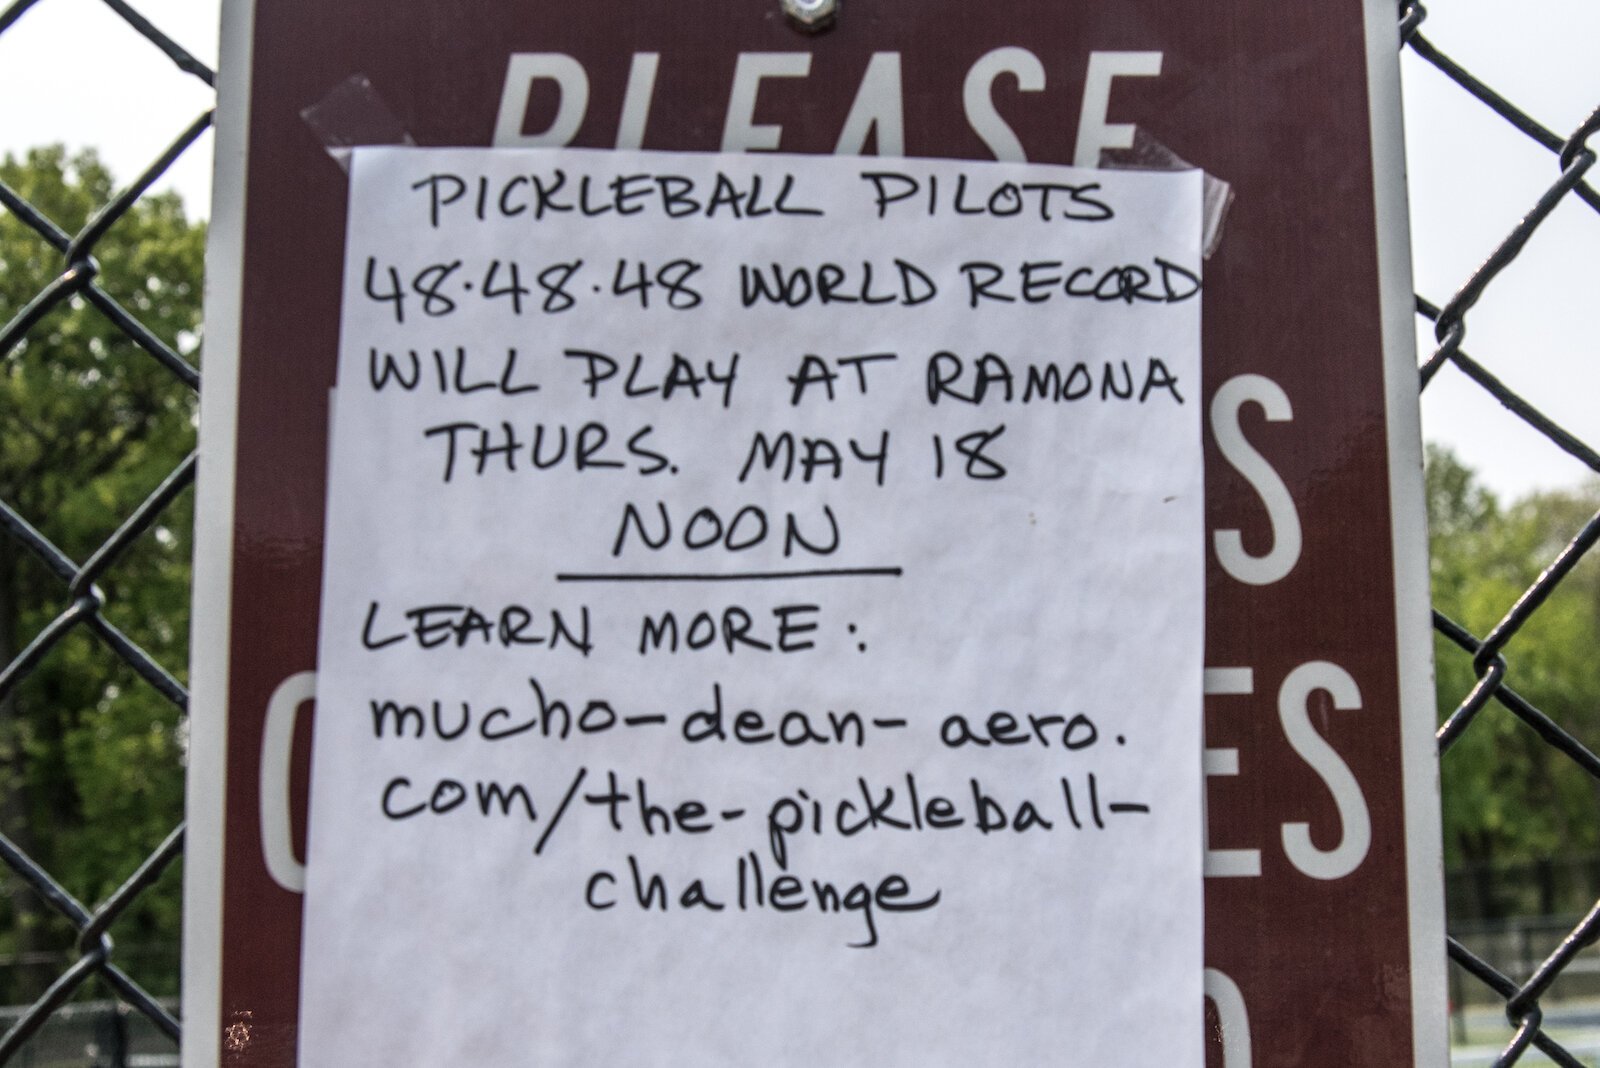 PLEASE
PICKLEBALL PILOTS
48.48.48 WORLD RECORD
WILL PLAY AT RAMONA
THURS. MAY 18
NOON
LEARN MORE:
mucho-dean-aero.
com/the-pickleball-
challenge